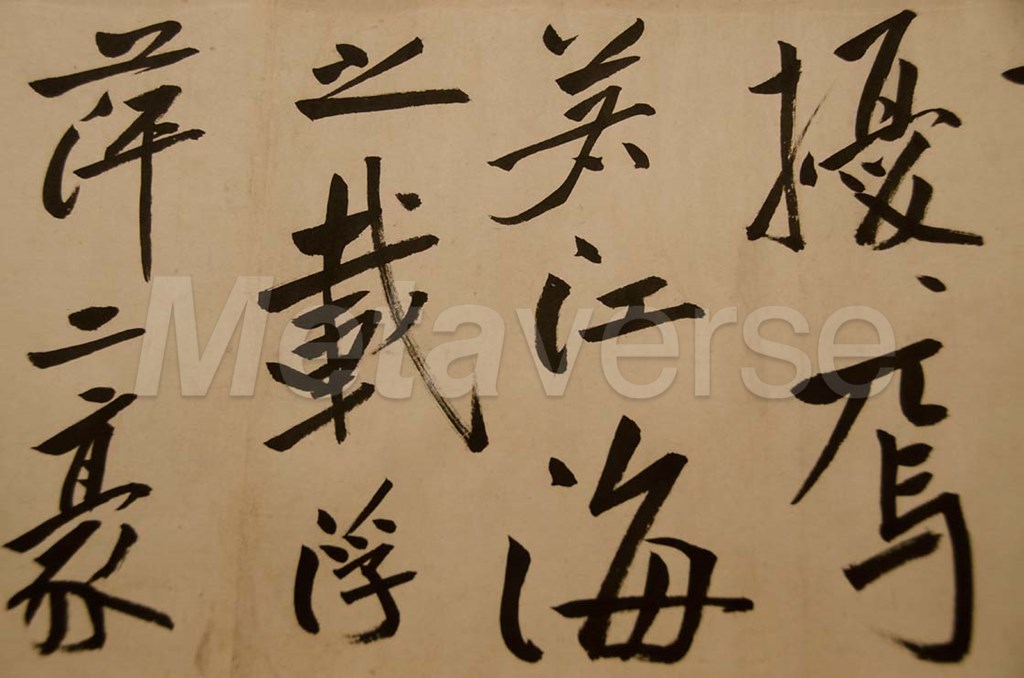 擾、焉
若江海
之載浮
萍二豪
Metaverse